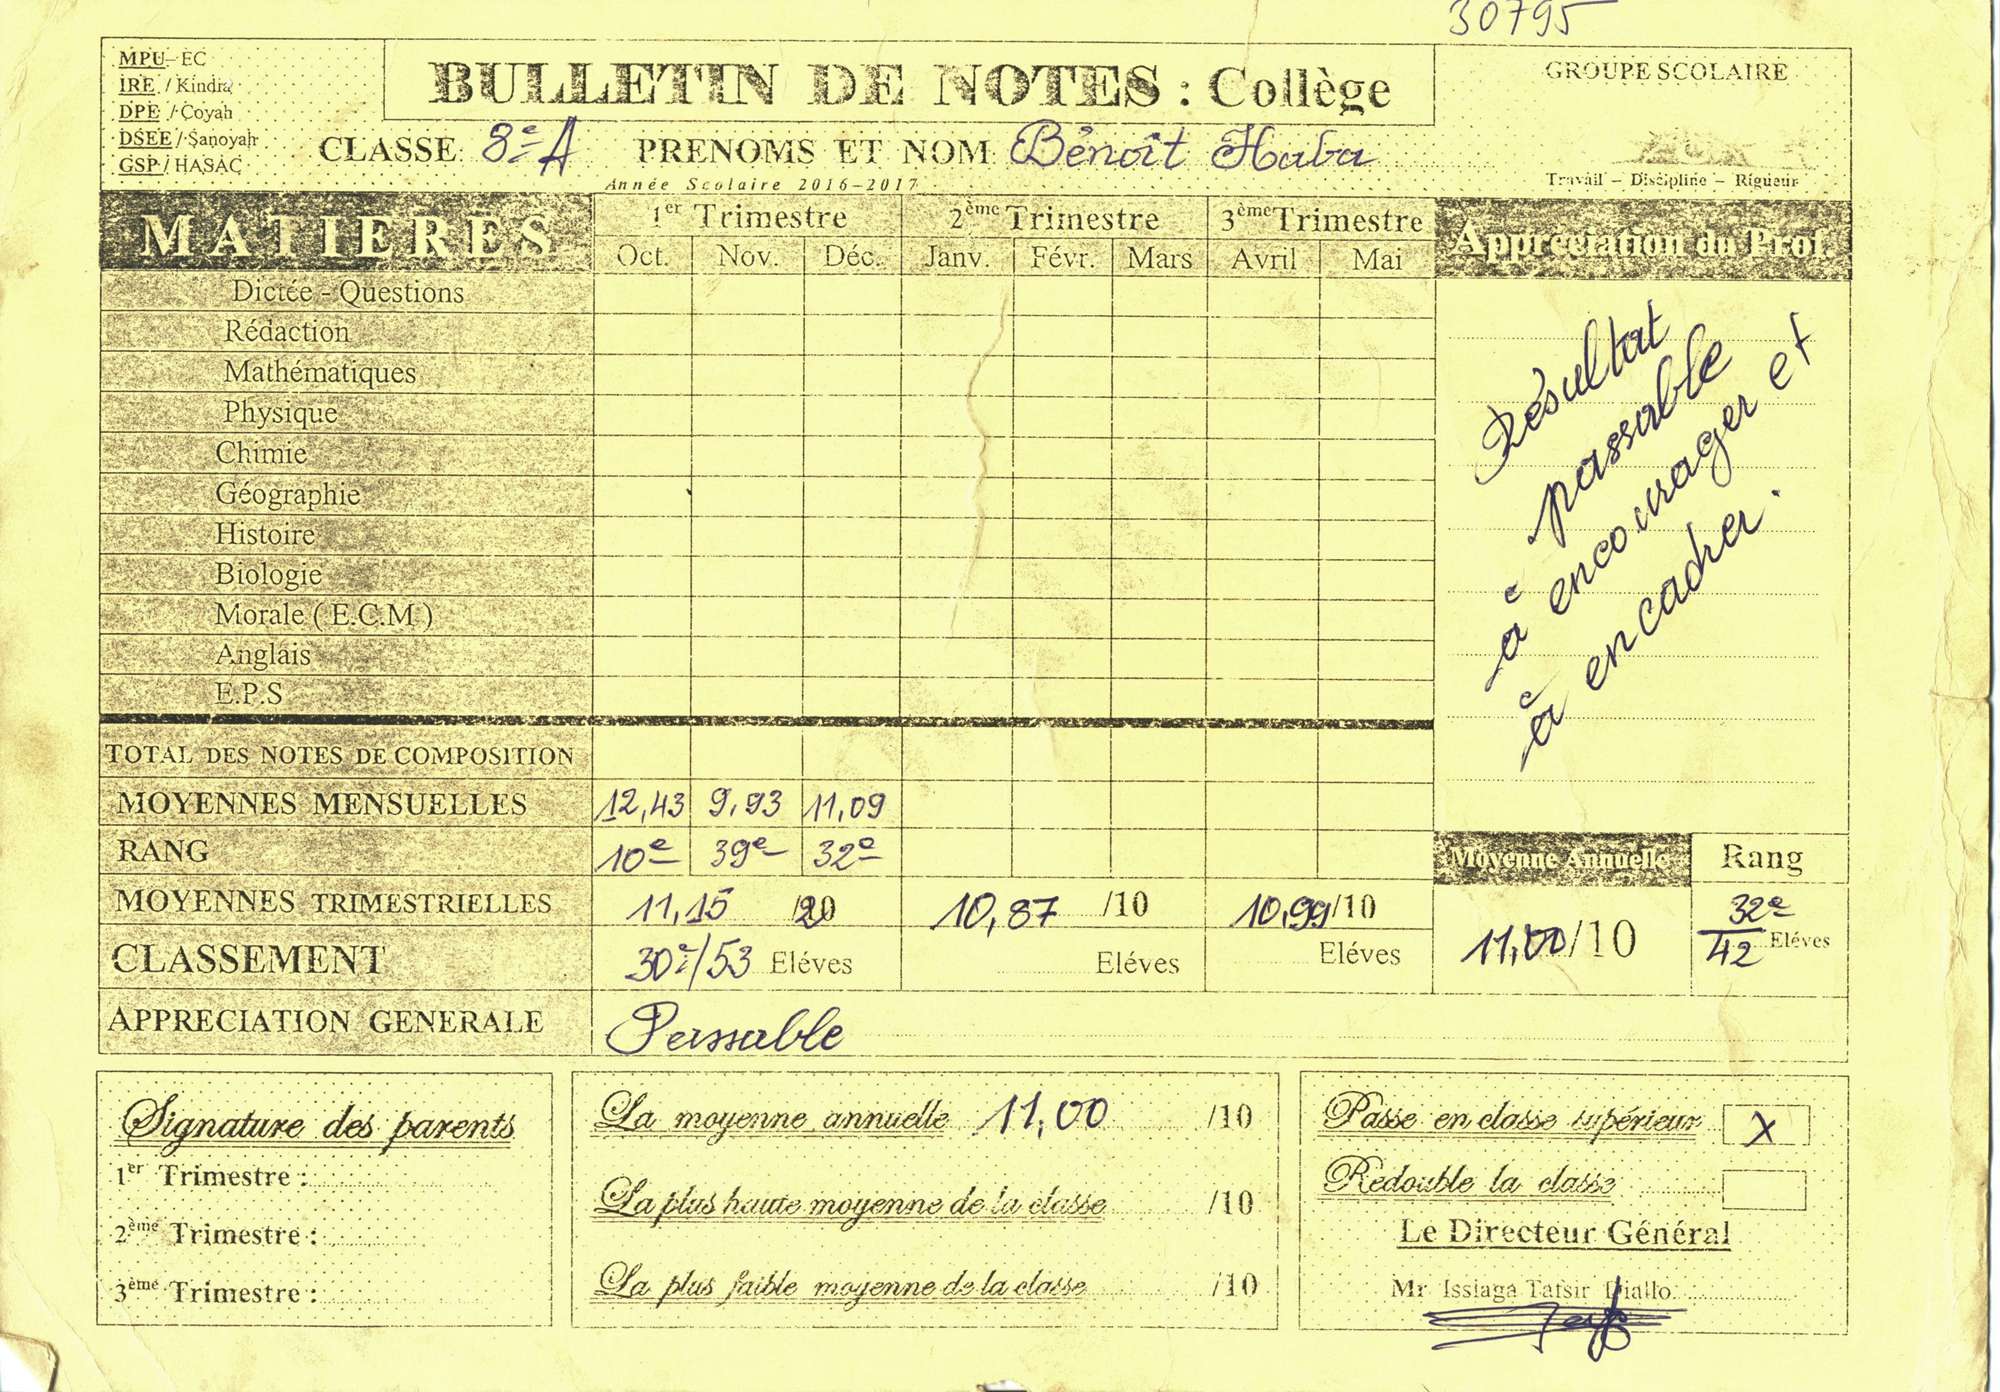 30795
MPU - EC
IRE / Kindia
DPE / Coyah
DSEE / Sanoyah
GSP / HASAC
BULLETIN DE NOTES : Collège
GROUPE SCOLAIRE
Travail – Discipline – Rigueur
CLASSE 8e A PRENOMS ET NOM Bénoît Haba
Année Scolaire 2016-2017
MATIERES 1er Trimestre 2ème Trimestre 3ème Trimestre Appréciation du Prof.
Oct. Nov. Déc. Janv. Févr. Mars Avril Mai
Dictée - Questions
Rédaction
Mathématiques
Physique
Chimie
Géographie
Histoire
Biologie
Morale ( E.C.M )
Anglais
E.P.S
Résultat
passable
à encourager et
à encadrer.
TOTAL DES NOTES DE COMPOSITION
MOYENNES MENSUELLES 12,43 9,93 11,09
RANG 10e 39e 32e
Moyenne Annuelle Rang
MOYENNES TRIMESTRIELLES 11,15 /20 10,87 /10 10,99 /10
CLASSEMENT 30e/53 Eléves Eléves Eléves
11,00 /10 32e/42 Eléves
APPRECIATION GENERALE Passable
Signature des parents
1er Trimestre :
2ème Trimestre :
3ème Trimestre :
La moyenne annuelle 11,00 /10
La plus haute moyenne de la classe /10
La plus faible moyenne de la classe /10
Passe en classe supérieur X
Redouble la classe
Le Directeur Général
Mr Issiaga Tafsir Diallo